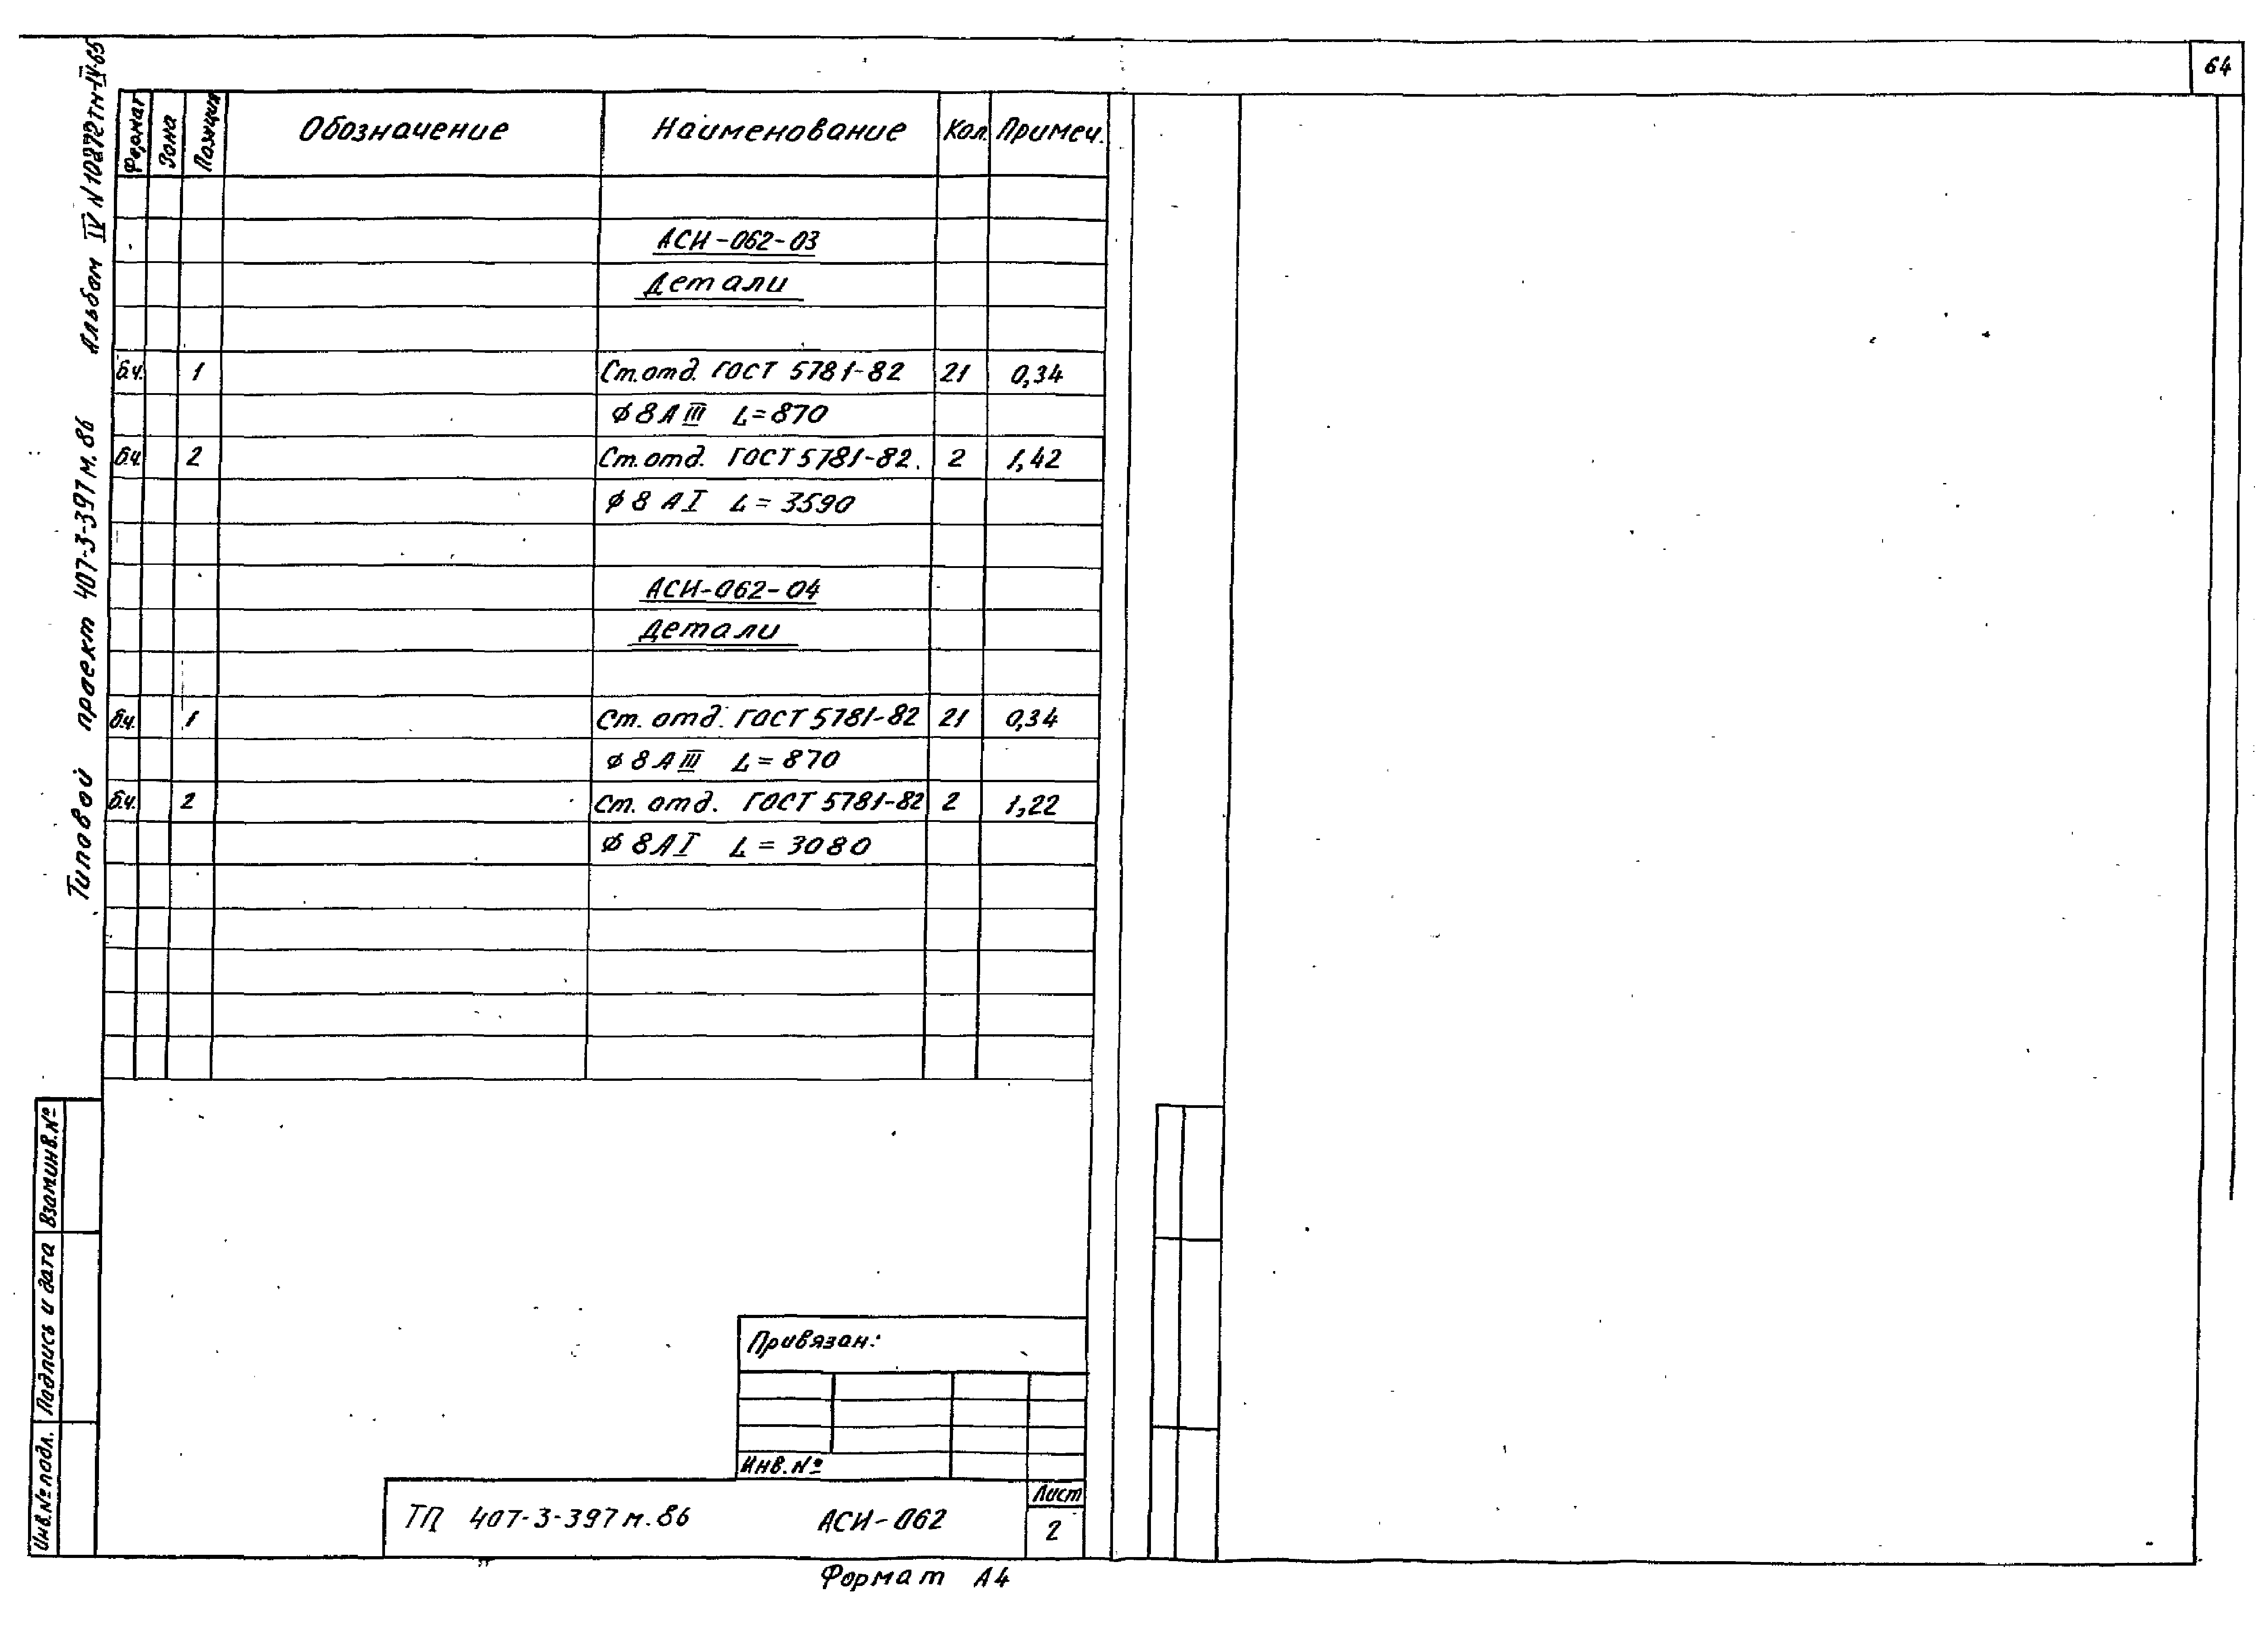 64
Типовой проект 407-3-397м.86 Альбом IV N10872тм-IV-65
Формат Зона Позиция Обозначение Наименование Кол. Примеч.
АСИ-062-03
Детали
б.ч. 1 Ст.отд. ГОСТ 5781-82 21 0,34
ϕ8АIII L=870
б.ч. 2 Ст.отд. ГОСТ 5781-82. 2 1,42
ϕ8 АI L=3590
АСИ-062-04
Детали
б.ч. 1 Ст. отд. ГОСТ 5781-82 21 0,34
ϕ8АIII L=870
б.ч. 2 Ст. отд. ГОСТ 5781-82 2 1,22
ϕ8АI L=3080
Взам.инв.№
Подпись и дата
Инв.№ подл.
Привязан:
Инв.№
ТП 407-3-397м.86 АСИ-062
Лист
2
Формат А4